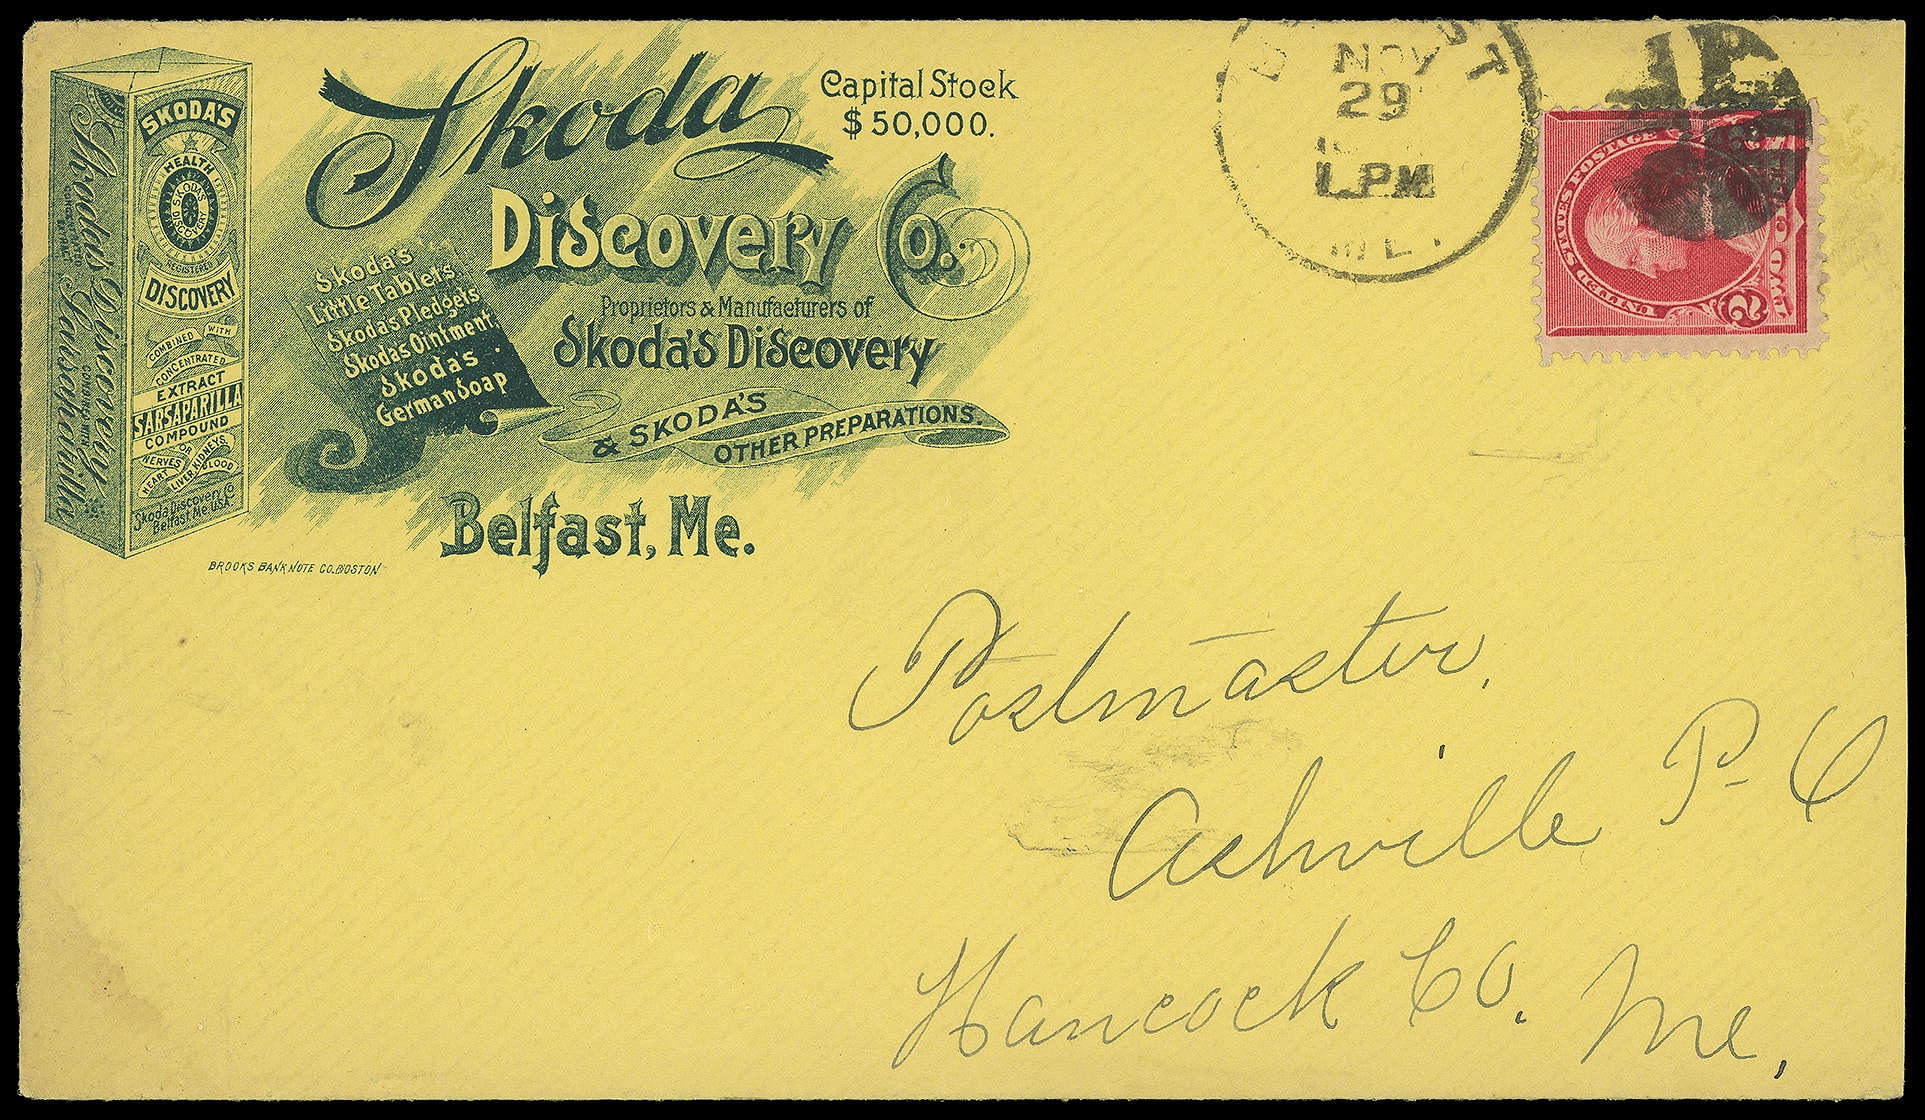 Skoda
Discovery Co.
Capital Stock
$50,000.
Proprietors & Manufacturers of
Skoda's Discovery
& SKODA'S
OTHER PREPARATIONS.
Belfast, Me.
Skoda's
Little Tablets
Skoda's Pledgets
Skoda's Ointment
Skoda's
German Soap
SKODA'S
HEALTH
SKODA'S
DISCOVERY
REGISTERED
DISCOVERY
COMBINED WITH
CONCENTRATED
EXTRACT
SARSAPARILLA
COMPOUND
FOR
NERVES KIDNEYS
HEART LIVER BLOOD
Skoda Discovery Co
Belfast, Me. U.S.A.
Skoda's Discovery
COMBINED WITH
Sarsaparilla
BROOKS BANK NOTE CO. BOSTON
NOV
29
1 PM
ME.
UNITED STATES POSTAGE
2
2
Postmaster,
Ashville P. O
Hancock Co. Me,